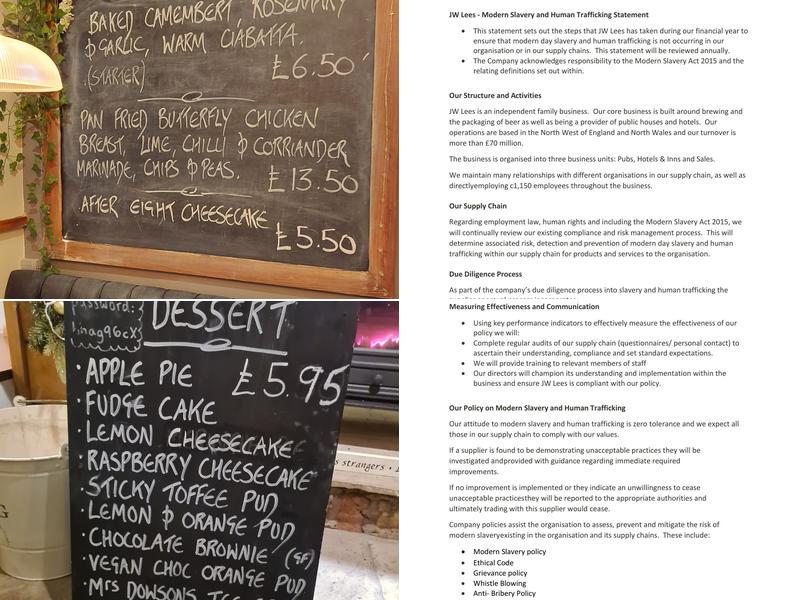 BAKED CAMEMBERT, ROSEMARY
& GARLIC, WARM CIABATTA.
(STARTER) £6.50
PAN FRIED BUTTERFLY CHICKEN
BREAST, LIME, CHILLI & CORRIANDER
MARINADE, CHIPS & PEAS. £13.50
AFTER EIGHT CHEESECAKE
£5.50
password:
DESSERT
£5.95
· APPLE PIE
· FUDGE CAKE
· LEMON CHEESECAKE
· RASPBERRY CHEESECAKE
· STICKY TOFFEE PUD
· LEMON & ORANGE PUD
· CHOCOLATE BROWNIE (GF)
· VEGAN CHOC ORANGE PUD
· MRS DOWSONS
strangers
JW Lees - Modern Slavery and Human Trafficking Statement
• This statement sets out the steps that JW Lees has taken during our financial year to
ensure that modern day slavery and human trafficking is not occurring in our
organisation or in our supply chains. This statement will be reviewed annually.
• The Company acknowledges responsibility to the Modern Slavery Act 2015 and the
relating definitions set out within.
Our Structure and Activities
JW Lees is an independent family business. Our core business is built around brewing and
the packaging of beer as well as being a provider of public houses and hotels. Our
operations are based in the North West of England and North Wales and our turnover is
more than £70 million.
The business is organised into three business units: Pubs, Hotels & Inns and Sales.
We maintain many relationships with different organisations in our supply chain, as well as
directlyemploying c1,150 employees throughout the business.
Our Supply Chain
Regarding employment law, human rights and including the Modern Slavery Act 2015, we
will continually review our existing compliance and risk management process. This will
determine associated risk, detection and prevention of modern day slavery and human
trafficking within our supply chain for products and services to the organisation.
Due Diligence Process
As part of the company's due diligence process into slavery and human trafficking the
Measuring Effectiveness and Communication
• Using key performance indicators to effectively measure the effectiveness of our
policy we will:
• Complete regular audits of our supply chain (questionnaires/ personal contact) to
ascertain their understanding, compliance and set standard expectations.
• We will provide training to relevant members of staff
• Our directors will champion its understanding and implementation within the
business and ensure JW Lees is compliant with our policy.
Our Policy on Modern Slavery and Human Trafficking
Our attitude to modern slavery and human trafficking is zero tolerance and we expect all
those in our supply chain to comply with our values.
If a supplier is found to be demonstrating unacceptable practices they will be
investigated andprovided with guidance regarding immediate required
improvements.
If no improvement is implemented or they indicate an unwillingness to cease
unacceptable practicesthey will be reported to the appropriate authorities and
ultimately trading with this supplier would cease.
Company policies assist the organisation to assess, prevent and mitigate the risk of
modern slaveryexisting in the organisation and its supply chains. These include:
• Modern Slavery policy
• Ethical Code
• Grievance policy
• Whistle Blowing
• Anti- Bribery Policy